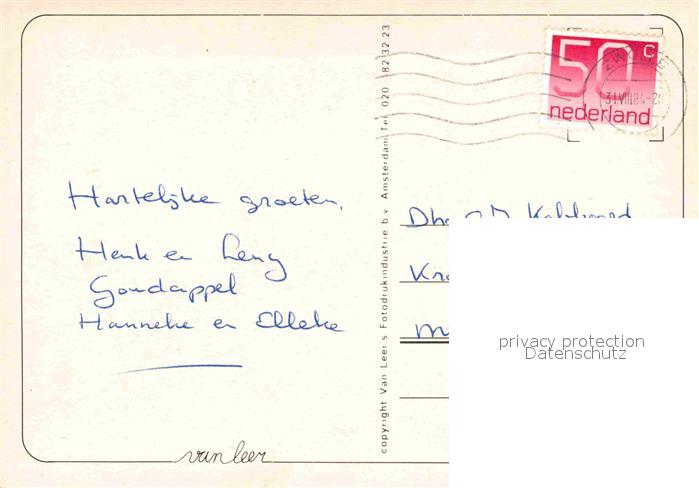 50 c
nederland
ZWOLLE
31.VIII.84-2
Hartelijke groeten,
Henk en Leny
Goudappel
Hanneke en Elleke
van leer
copyright Van Leer's Fotodrukindustrie b.v. Amsterdam Tel. 020 - 82 32 23
Dhr
privacy protection
Datenschutz